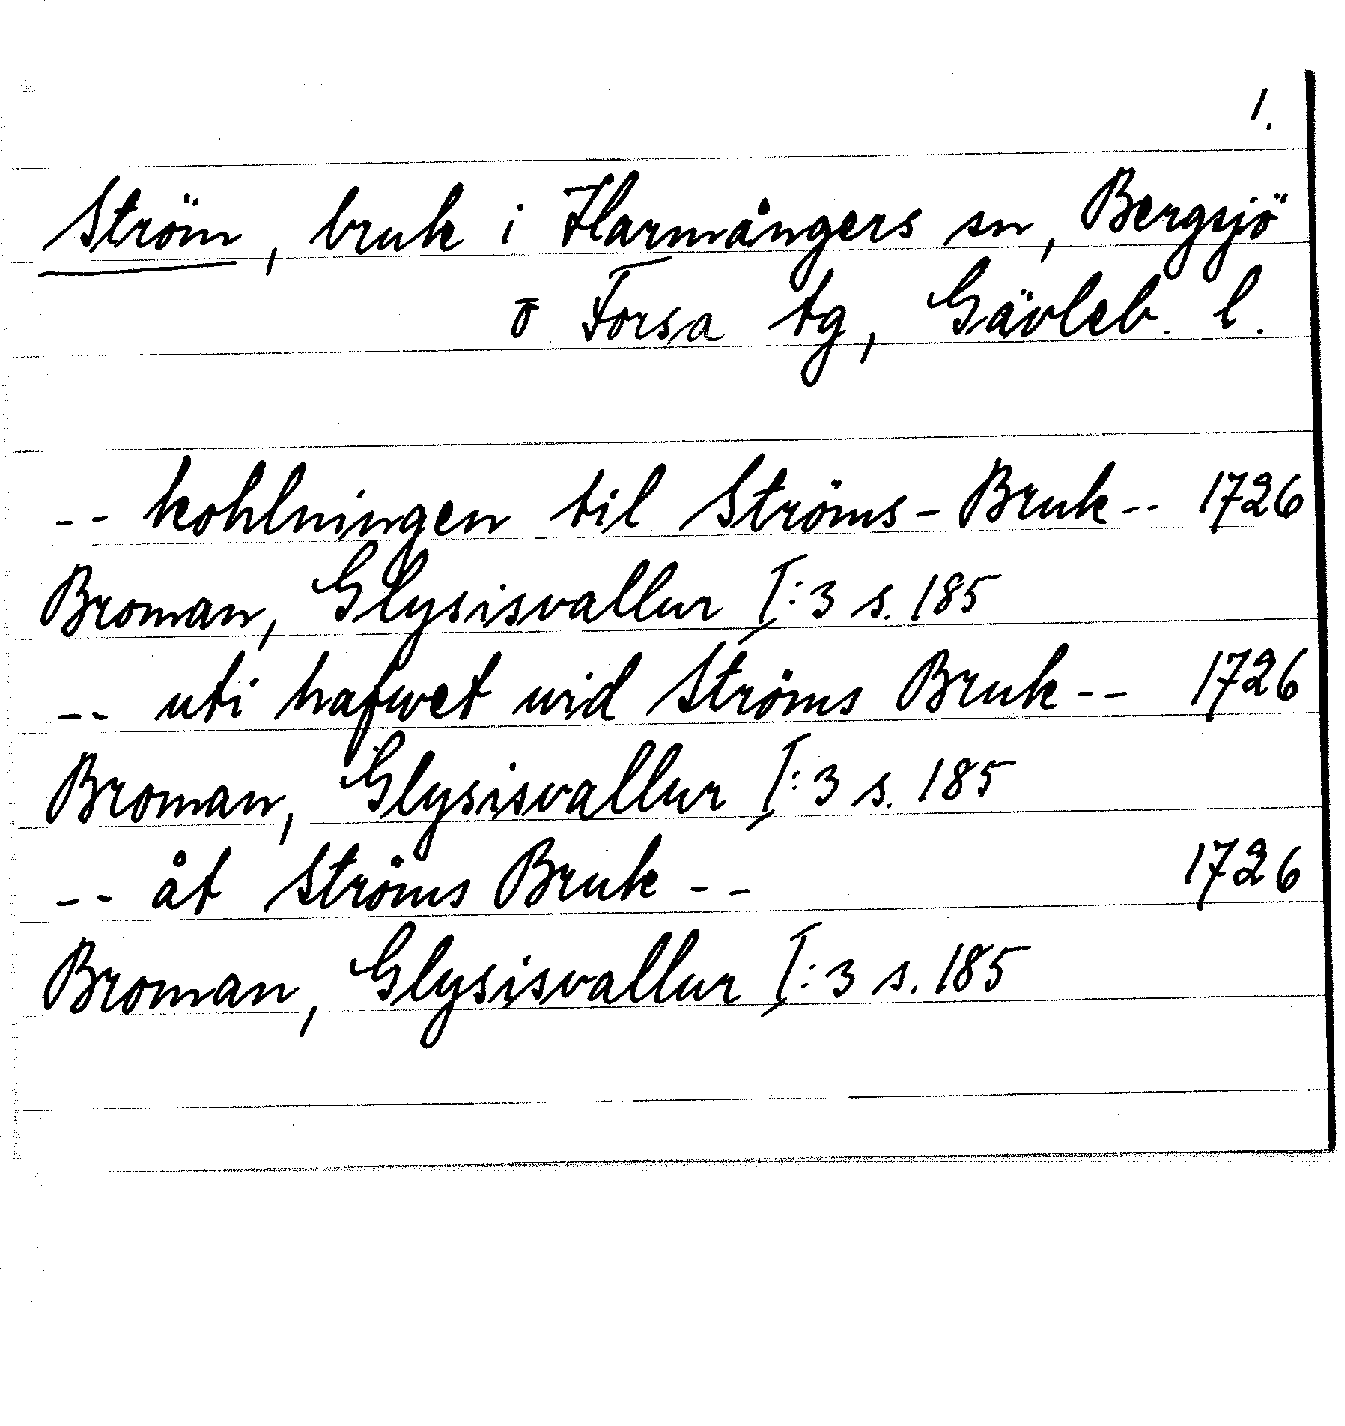 1.
Ström, bruk i Harmångers sn, Bergsjö
o Forsa tg, Gävleb. l.
-- kohlningen til Ströms-Bruk-- 1726
Broman, Glysisvallur I:3 s. 185
-- uti hafwet wid Ströms Bruk-- 1726
Broman, Glysisvallur I:3 s. 185
-- åt Ströms Bruk -- 1726
Broman, Glysisvallur I:3 s. 185